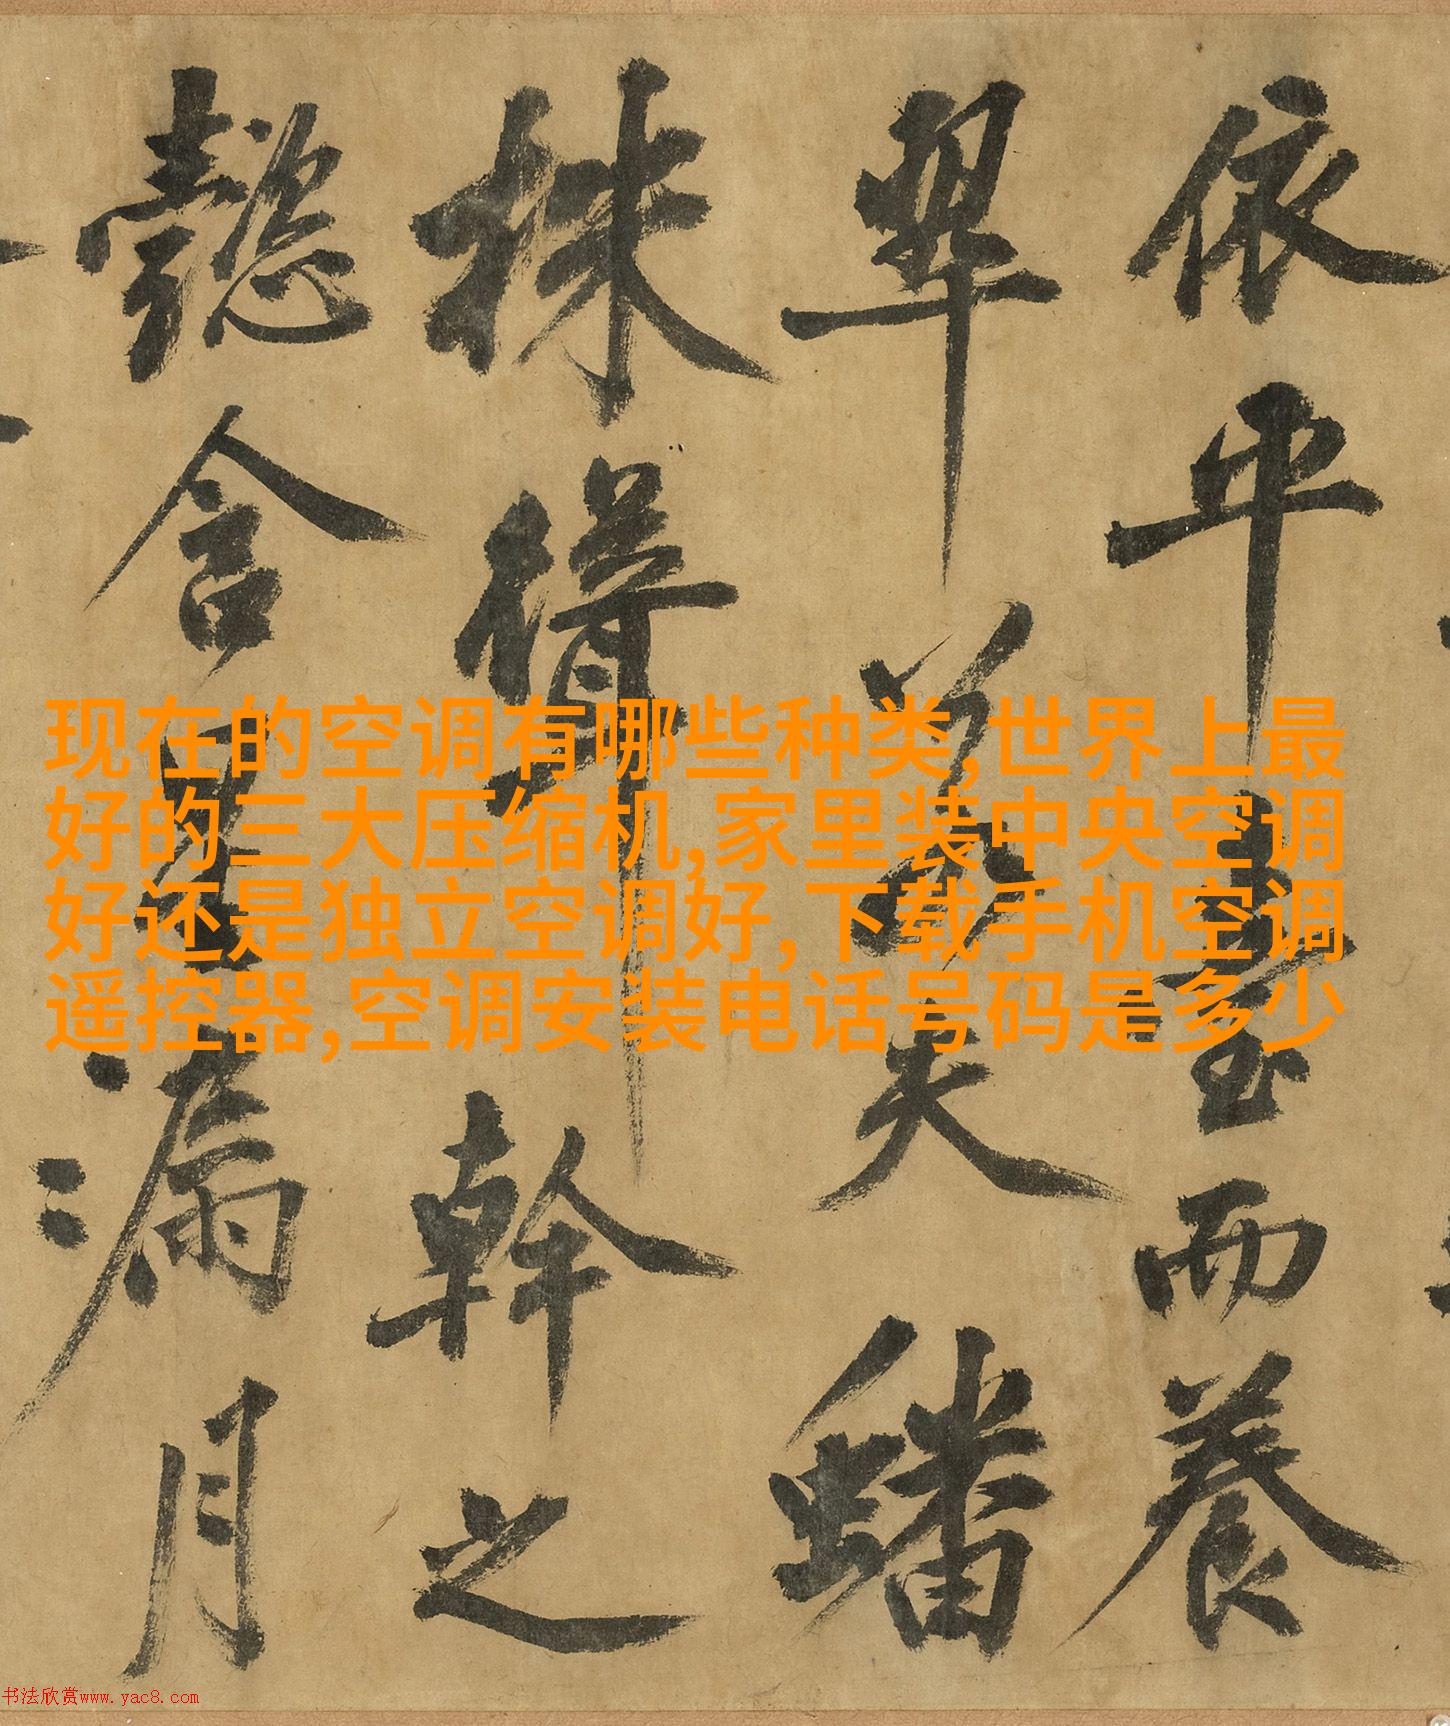 依平臺而養
翠若夫蟠
株幹之
懿含星漏月
现在的空调有哪些种类,世界上最
好的三大压缩机,家里装中央空调
好还是独立空调好,下载手机空调
遥控器,空调安装电话号码是多少
书法欣赏www.yac8.com